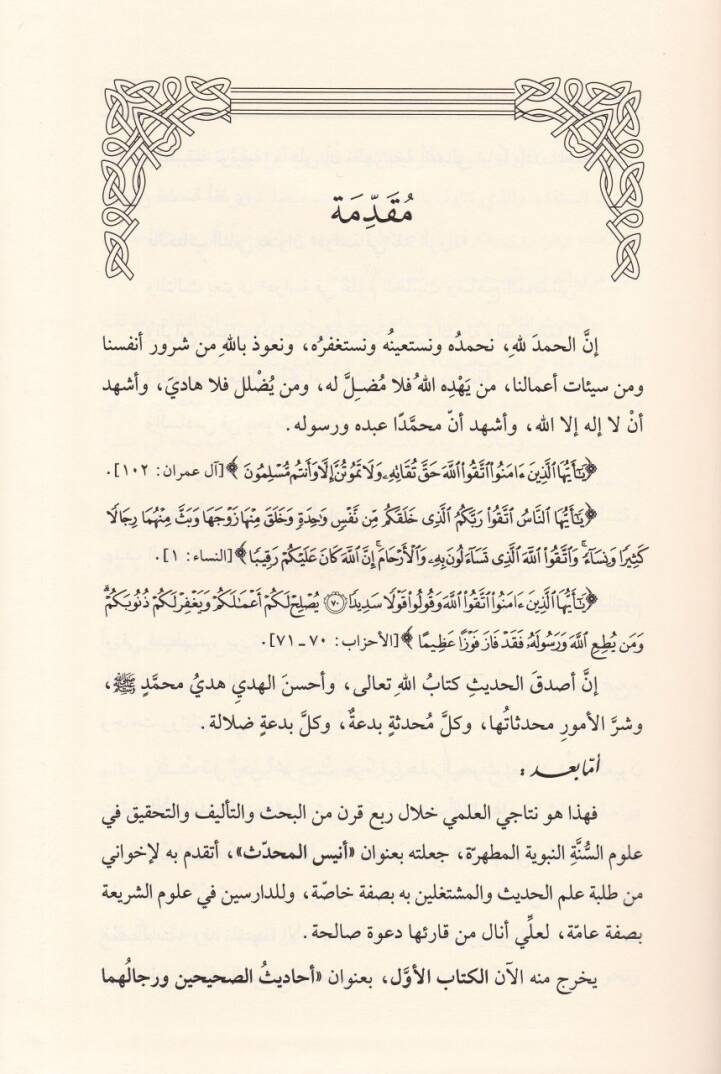 مُقَدِّمَة
إنَّ الحمدَ للهِ، نحمدُه ونستعينُه ونستغفرُه، ونعوذ باللهِ من شرور أنفسنا
ومن سيئات أعمالنا، من يَهْدِه اللهُ فلا مُضلَّ له، ومن يُضْلل فلا هاديَ، وأشهد
أنْ لا إله إلا الله، وأشهد أنّ محمَّدًا عبده ورسوله.
﴿يَٰٓأَيُّهَا ٱلَّذِينَ ءَامَنُوا۟ ٱتَّقُوا۟ ٱللَّهَ حَقَّ تُقَاتِهِۦ وَلَا تَمُوتُنَّ إِلَّا وَأَنتُم مُّسْلِمُونَ﴾ [آل عمران: ١٠٢].
﴿يَٰٓأَيُّهَا ٱلنَّاسُ ٱتَّقُوا۟ رَبَّكُمُ ٱلَّذِى خَلَقَكُم مِّن نَّفْسٍ وَٰحِدَةٍ وَخَلَقَ مِنْهَا زَوْجَهَا وَبَثَّ مِنْهُمَا رِجَالًا
كَثِيرًا وَنِسَآءً ۚ وَٱتَّقُوا۟ ٱللَّهَ ٱلَّذِى تَسَآءَلُونَ بِهِۦ وَٱلْأَرْحَامَ ۚ إِنَّ ٱللَّهَ كَانَ عَلَيْكُمْ رَقِيبًا﴾ [النساء: ١].
﴿يَٰٓأَيُّهَا ٱلَّذِينَ ءَامَنُوا۟ ٱتَّقُوا۟ ٱللَّهَ وَقُولُوا۟ قَوْلًا سَدِيدًا ٧٠ يُصْلِحْ لَكُمْ أَعْمَٰلَكُمْ وَيَغْفِرْ لَكُمْ ذُنُوبَكُمْ ۗ
وَمَن يُطِعِ ٱللَّهَ وَرَسُولَهُۥ فَقَدْ فَازَ فَوْزًا عَظِيمًا﴾ [الأحزاب: ٧٠ ـ ٧١].
إنَّ أصدقَ الحديثِ كتابُ اللهِ تعالى، وأحسنَ الهديِ هديُ محمَّدٍ ﷺ،
وشرَّ الأمورِ محدثاتُها، وكلَّ مُحدثةٍ بدعةٌ، وكلَّ بدعةٍ ضلالة.
أمّا بعد:
فهذا هو نتاجي العلمي خلال ربع قرن من البحث والتأليف والتحقيق في
علوم السُّنَّةِ النبوية المطهرّة، جعلته بعنوان «أنيس المحدّث»، أتقدم به لإخواني
من طلبة علم الحديث والمشتغلين به بصفة خاصّة، وللدارسين في علوم الشريعة
بصفة عامّة، لعلِّي أنال من قارئها دعوة صالحة.
يخرج منه الآن الكتاب الأوَّل، بعنوان «أحاديثُ الصحيحين ورجالُهما